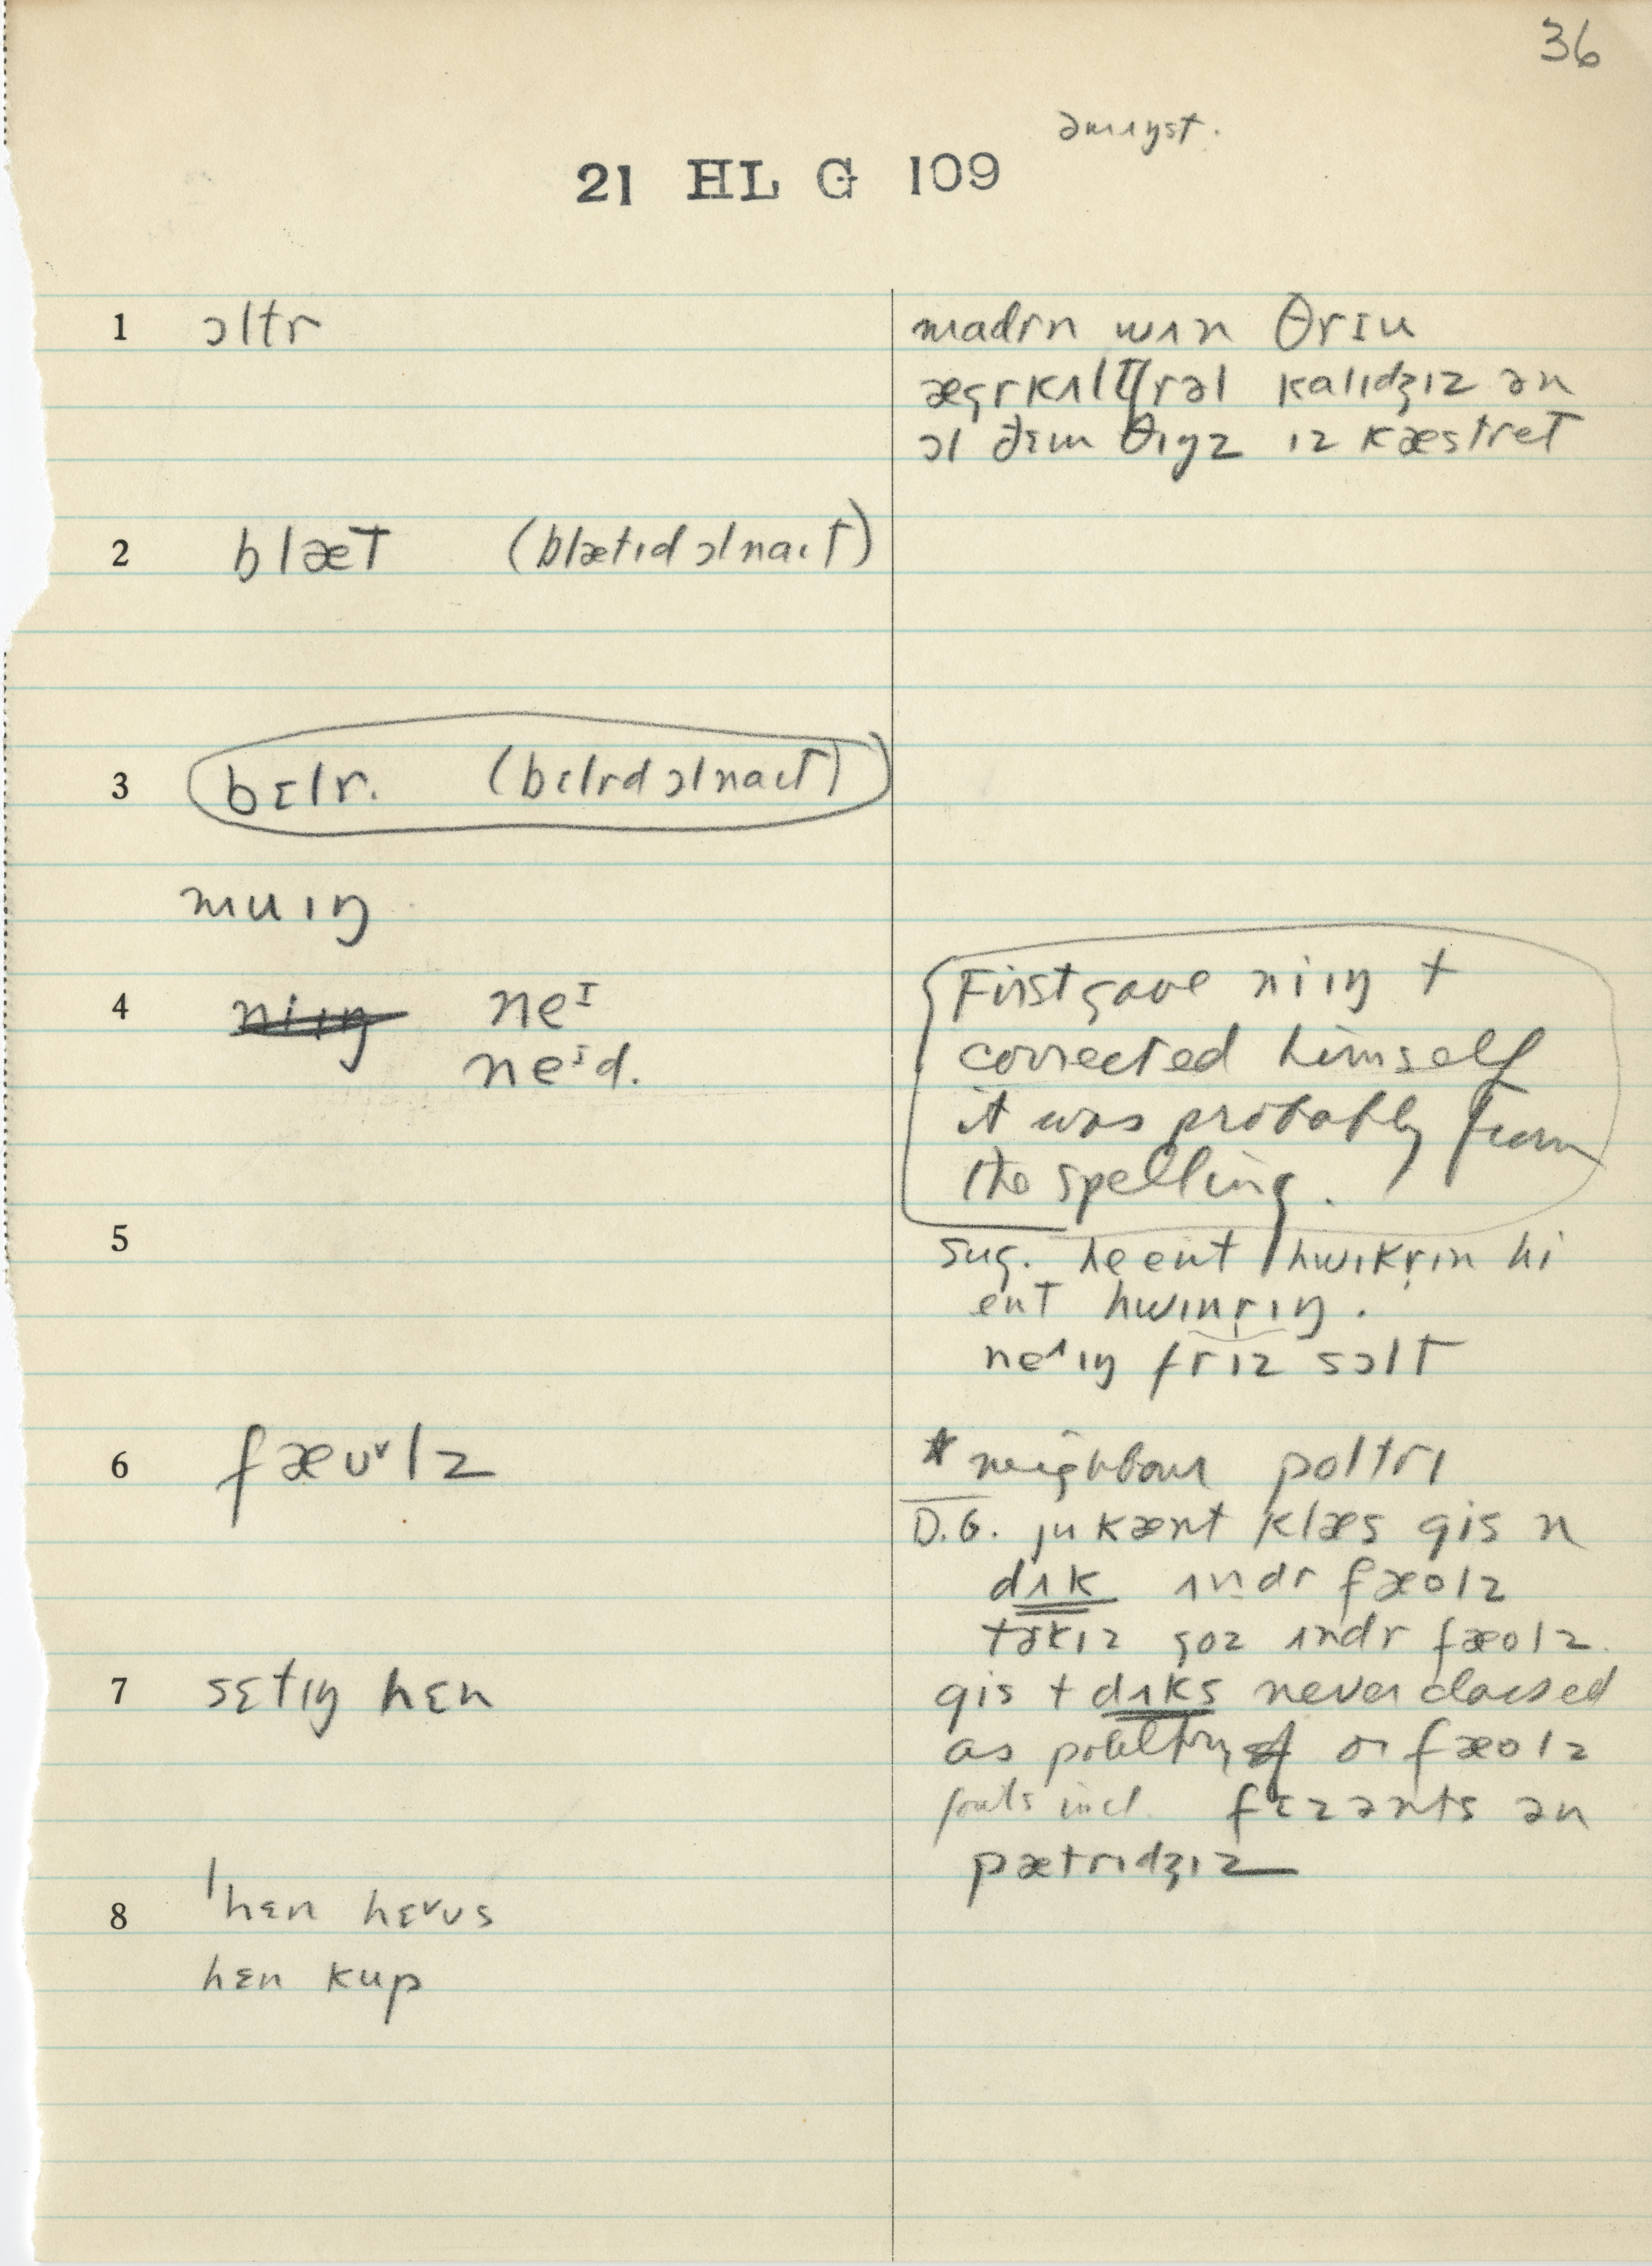 36
əmıŋst.
21 HL G 109
1 ɔltr
madrn wɪn θrɪu
ægrkʌltʃrəl kalıdʒız ən
ɔl ðɛm θıŋz ız kæstret
2 blæt (blætıd ɔlnaıt)
3 bɛlr. (bɛlrd ɔlnaıt)
muıŋ
4 niıŋ neᴵ
neᴵd.
First gave niıŋ +
corrected himself
it was probably from
the spelling.
5
sug. he ent hwıkrın hi
ent hwınrıŋ.
ıŋ friz sɔlt
6 fæʊˠlz
* neighbour poltrı
D.G. ju kænt klæs gis n
dʌk ʌndr fæolz
tərkız goz ʌndr fæolz.
7 sɛtıŋ hɛn
gis + dʌks never classed
as poultry or fæolz
fouls incl. fɛzənts ən
pætrıdʒız
8 ˈhɛn hɛˠʊs
hɛn kup